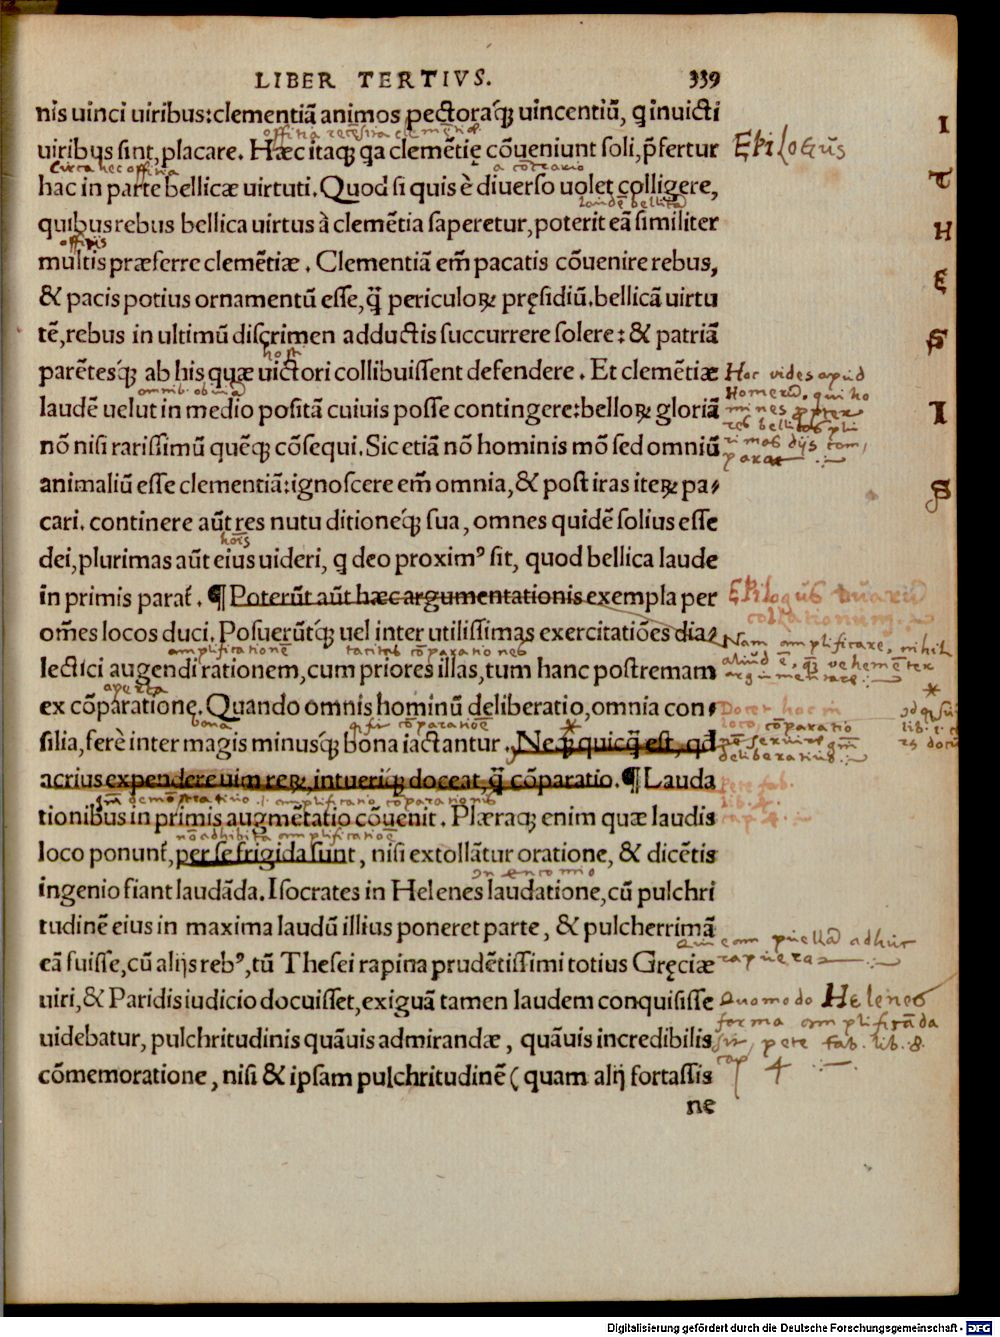 LIBER TERTIVS. 339
nis uinci uiribus: clementiã animos pectoraq́ꝫ uincentiũ, ꝗ inuicti
uiribus sint, placare. Hæc itaqꝫ ꝗa clemẽtię cõueniunt soli, p̃fertur
hac in parte bellicæ uirtuti. Quod si quis è diuerso uolet colligere,
quibus rebus bellica uirtus à clemẽtia saperetur, poterit eã similiter
multis præferre clemẽtiæ. Clementiã em̃ pacatis cõuenire rebus,
& pacis potius ornamentũ esse, ꝗ̃ periculoꝝ pręsidiũ. bellicã uirtu
tẽ, rebus in ultimũ discrimen adductis succurrere solere: & patriã
parẽtesq́ꝫ ab his quæ uictori collibuissent defendere. Et clemẽtiæ
laudẽ uelut in medio positã cuiuis posse contingere: belloꝝ gloriã
nõ nisi rarissimũ quẽqꝫ cõsequi. Sic etiã nõ hominis mõ sed omniũ
animaliũ esse clementiã: ignoscere em̃ omnia, & post iras iteꝝ pa⸗
cari. continere aũt res nutu ditioneq́ꝫ sua, omnes quidẽ solius esse
dei, plurimas aũt eius uideri, ꝗ deo proximꝰ sit, quod bellica laude
in primis parat̃. ¶ Poterũt aũt hæc argumentationis exempla per
om̃es locos duci. Posuerũtq́ꝫ uel inter utilissimas exercitatiões dia⸗
lectici augendi rationem, cum priores illas, tum hanc postremam
ex cõparatione. Quando omnis hominũ deliberatio, omnia con⸗
silia, ferè inter magis minusq́ꝫ bona iactantur. Neqꝫ quicꝗ̃ est, qd
acrius expendere uim reꝝ, intueriqꝫ doceat, ꝗ̃ cõparatio. ¶ Lauda
tionibus in primis augmẽtatio cõuenit. Plæraqꝫ enim quæ laudis
loco ponunt̃, per se frigida sunt, nisi extollãtur oratione, & dicẽtis
ingenio fiant laudãda. Isocrates in Helenes laudatione, cũ pulchri
tudinẽ eius in maxima laudũ illius poneret parte, & pulcherrimã
eã fuisse, cũ alijs rebꝰ, tũ Thesei rapina prudẽtissimi totius Gręciæ
uiri, & Paridis iudicio docuisset, exiguã tamen laudem conquisisse
uidebatur, pulchritudinis quãuis admirandæ, quãuis incredibilis
cõmemoratione, nisi & ipsam pulchritudinẽ (quam alij fortassis
ne
Epilogũs
I
T
H
E
S
I
S
Hoc vides apud
Homerũ, qui ho
mines propter
res bellicas pli
rimos dijs com,
parat
Epilogũs duarũ
collationum.
Nam amplificare, nihil
aliud ẽ, ꝗ̃ vehemẽter
argumentare
Docet hoc in
loco, cõparatio
deliberatiuũ.
Pete fab.
lib. 8.
cap 4.
Qui eam puellã adhuc
rapuerat
Quomodo Helenes
forma amplificãda
sit, pete fab. lib. 8.
cap 4
Digitalisierung gefördert durch die Deutsche Forschungsgemeinschaft - DFG